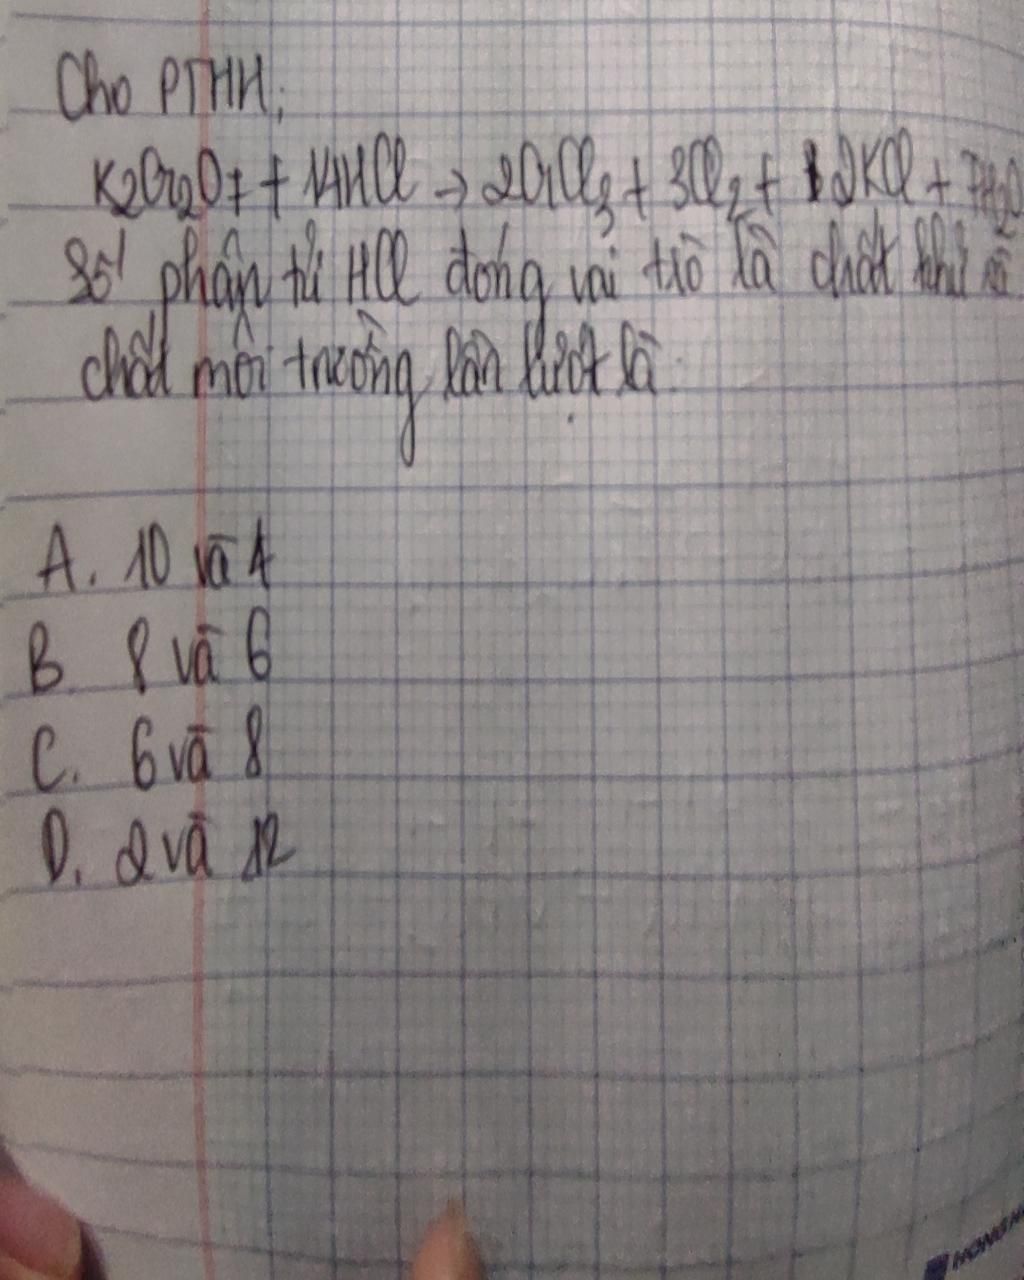 Cho PTHH:
K2Cr2O7 + 14HCl → 2CrCl3 + 3Cl2 + 2KCl + 7H2O
Số phân tử HCl đóng vai trò là chất khử và
chất môi trường lần lượt là:
A. 10 và 4
B. 8 và 6
C. 6 và 8
D. 2 và 12